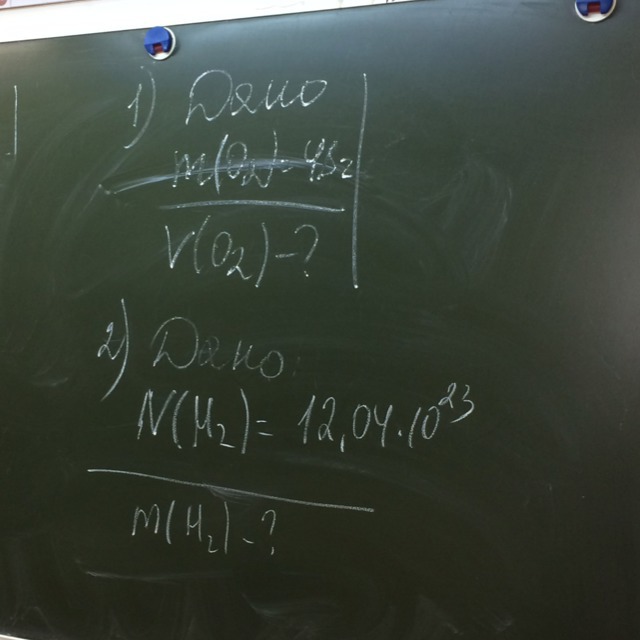 1) Дано
V(O₂)-?
2) Дано:
N(H₂)= 12,04·10²³
m(H₂)-?